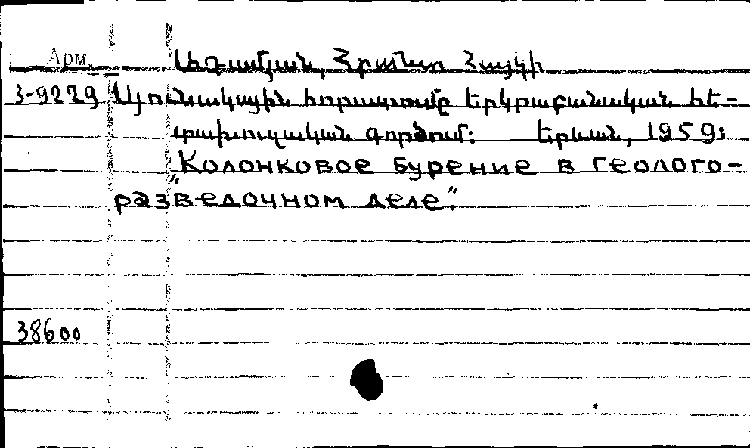 Арм.
Ադամյան, Հրանտ Հայկի
3-9229 Սյունակային հորատումը երկրաբանական հե-
տախուզական գործում: Երևան, 1959:
"Колонковое бурение в геолого-
разведочном деле".
38600